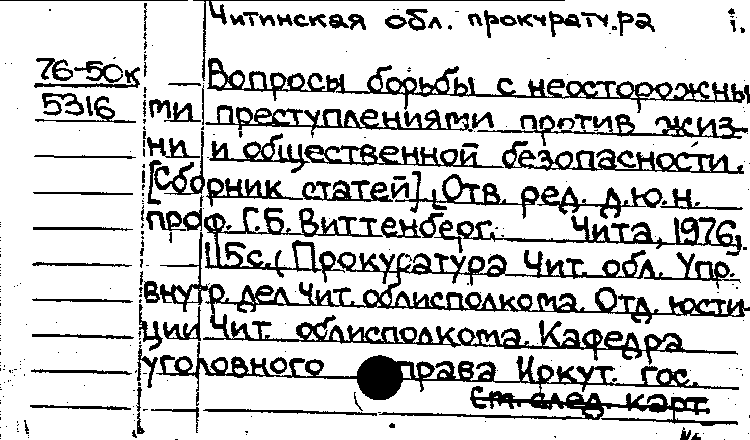 Читинская обл. прокуратура i.
76-50к Вопросы борьбы с неосторожны
5316 ми преступлениями против жиз-
ни и общественной безопасности.
[Сборник статей]. Отв. ред. д.ю.н.
проф. Г.Б. Виттенберг. Чита, 1976.
115с. (Прокуратура Чит. обл. Упр.
внутр. дел Чит. облисполкома. Отд. юсти-
ции Чит. облисполкома. Кафедра
уголовного права Иркут. гос.
См. след. карт.